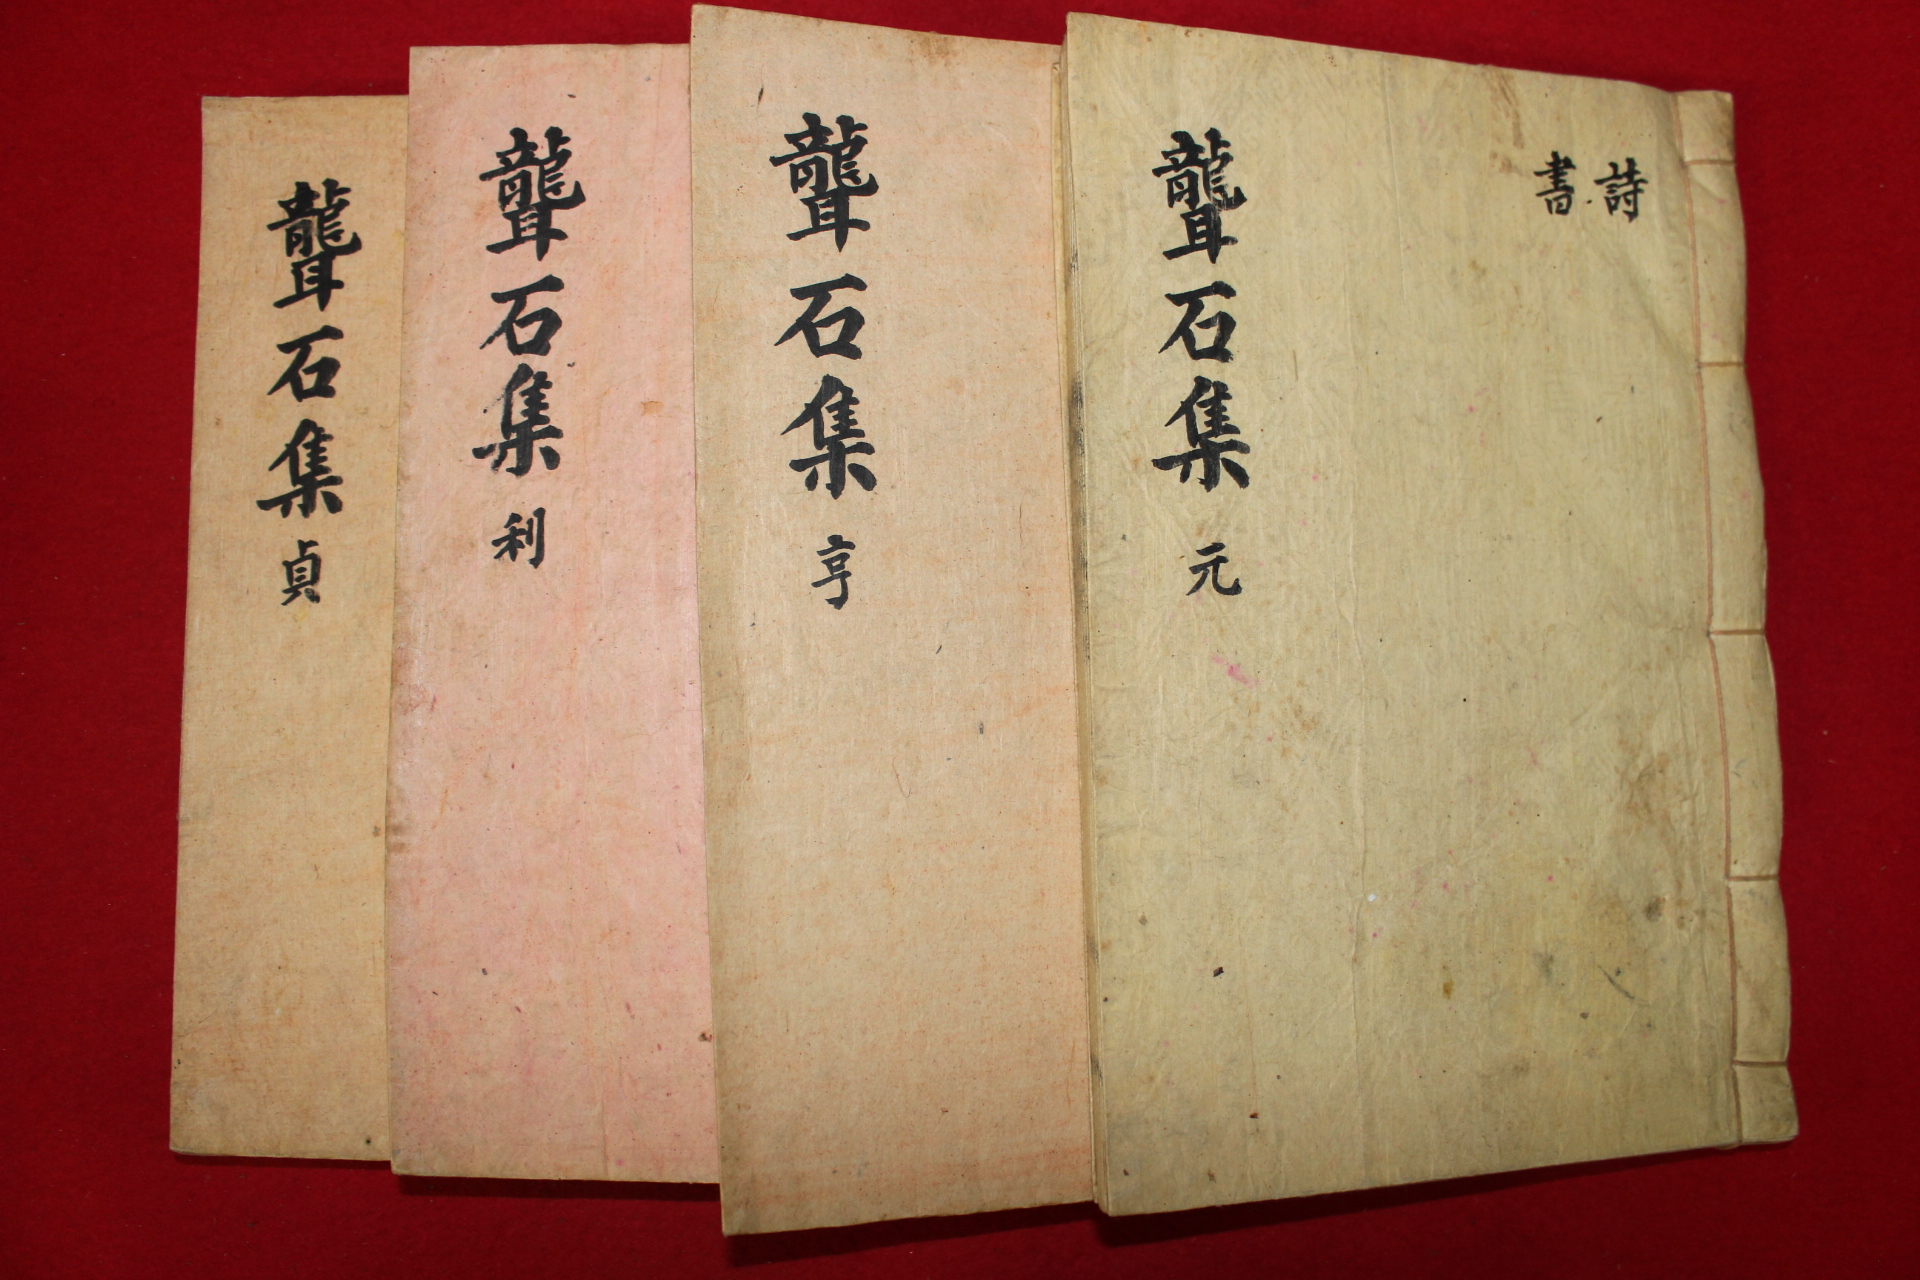 詩
書
聾石集 元
聾石集 亨
聾石集 利
聾石集 貞